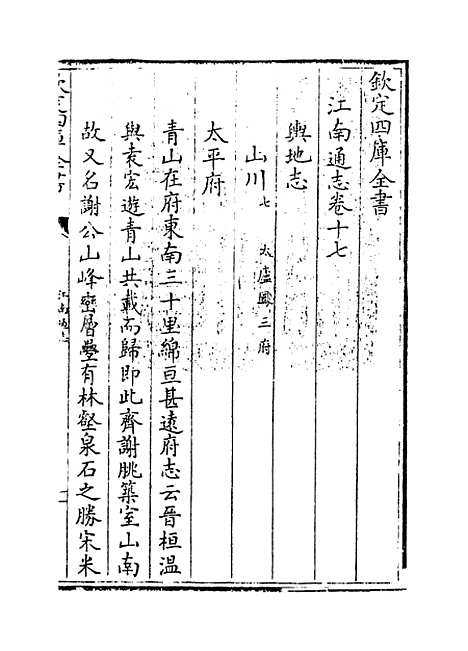 欽定四庫全書
江南通志卷十七
輿地志
山川七 太廬鳳三府
太平府
青山在府東南三十里綿亘甚遠府志云晉桓温
與袁宏遊青山共載而歸即此齊謝朓築室山南
故又名謝公山峰巒層疊有林壑泉石之勝宋米